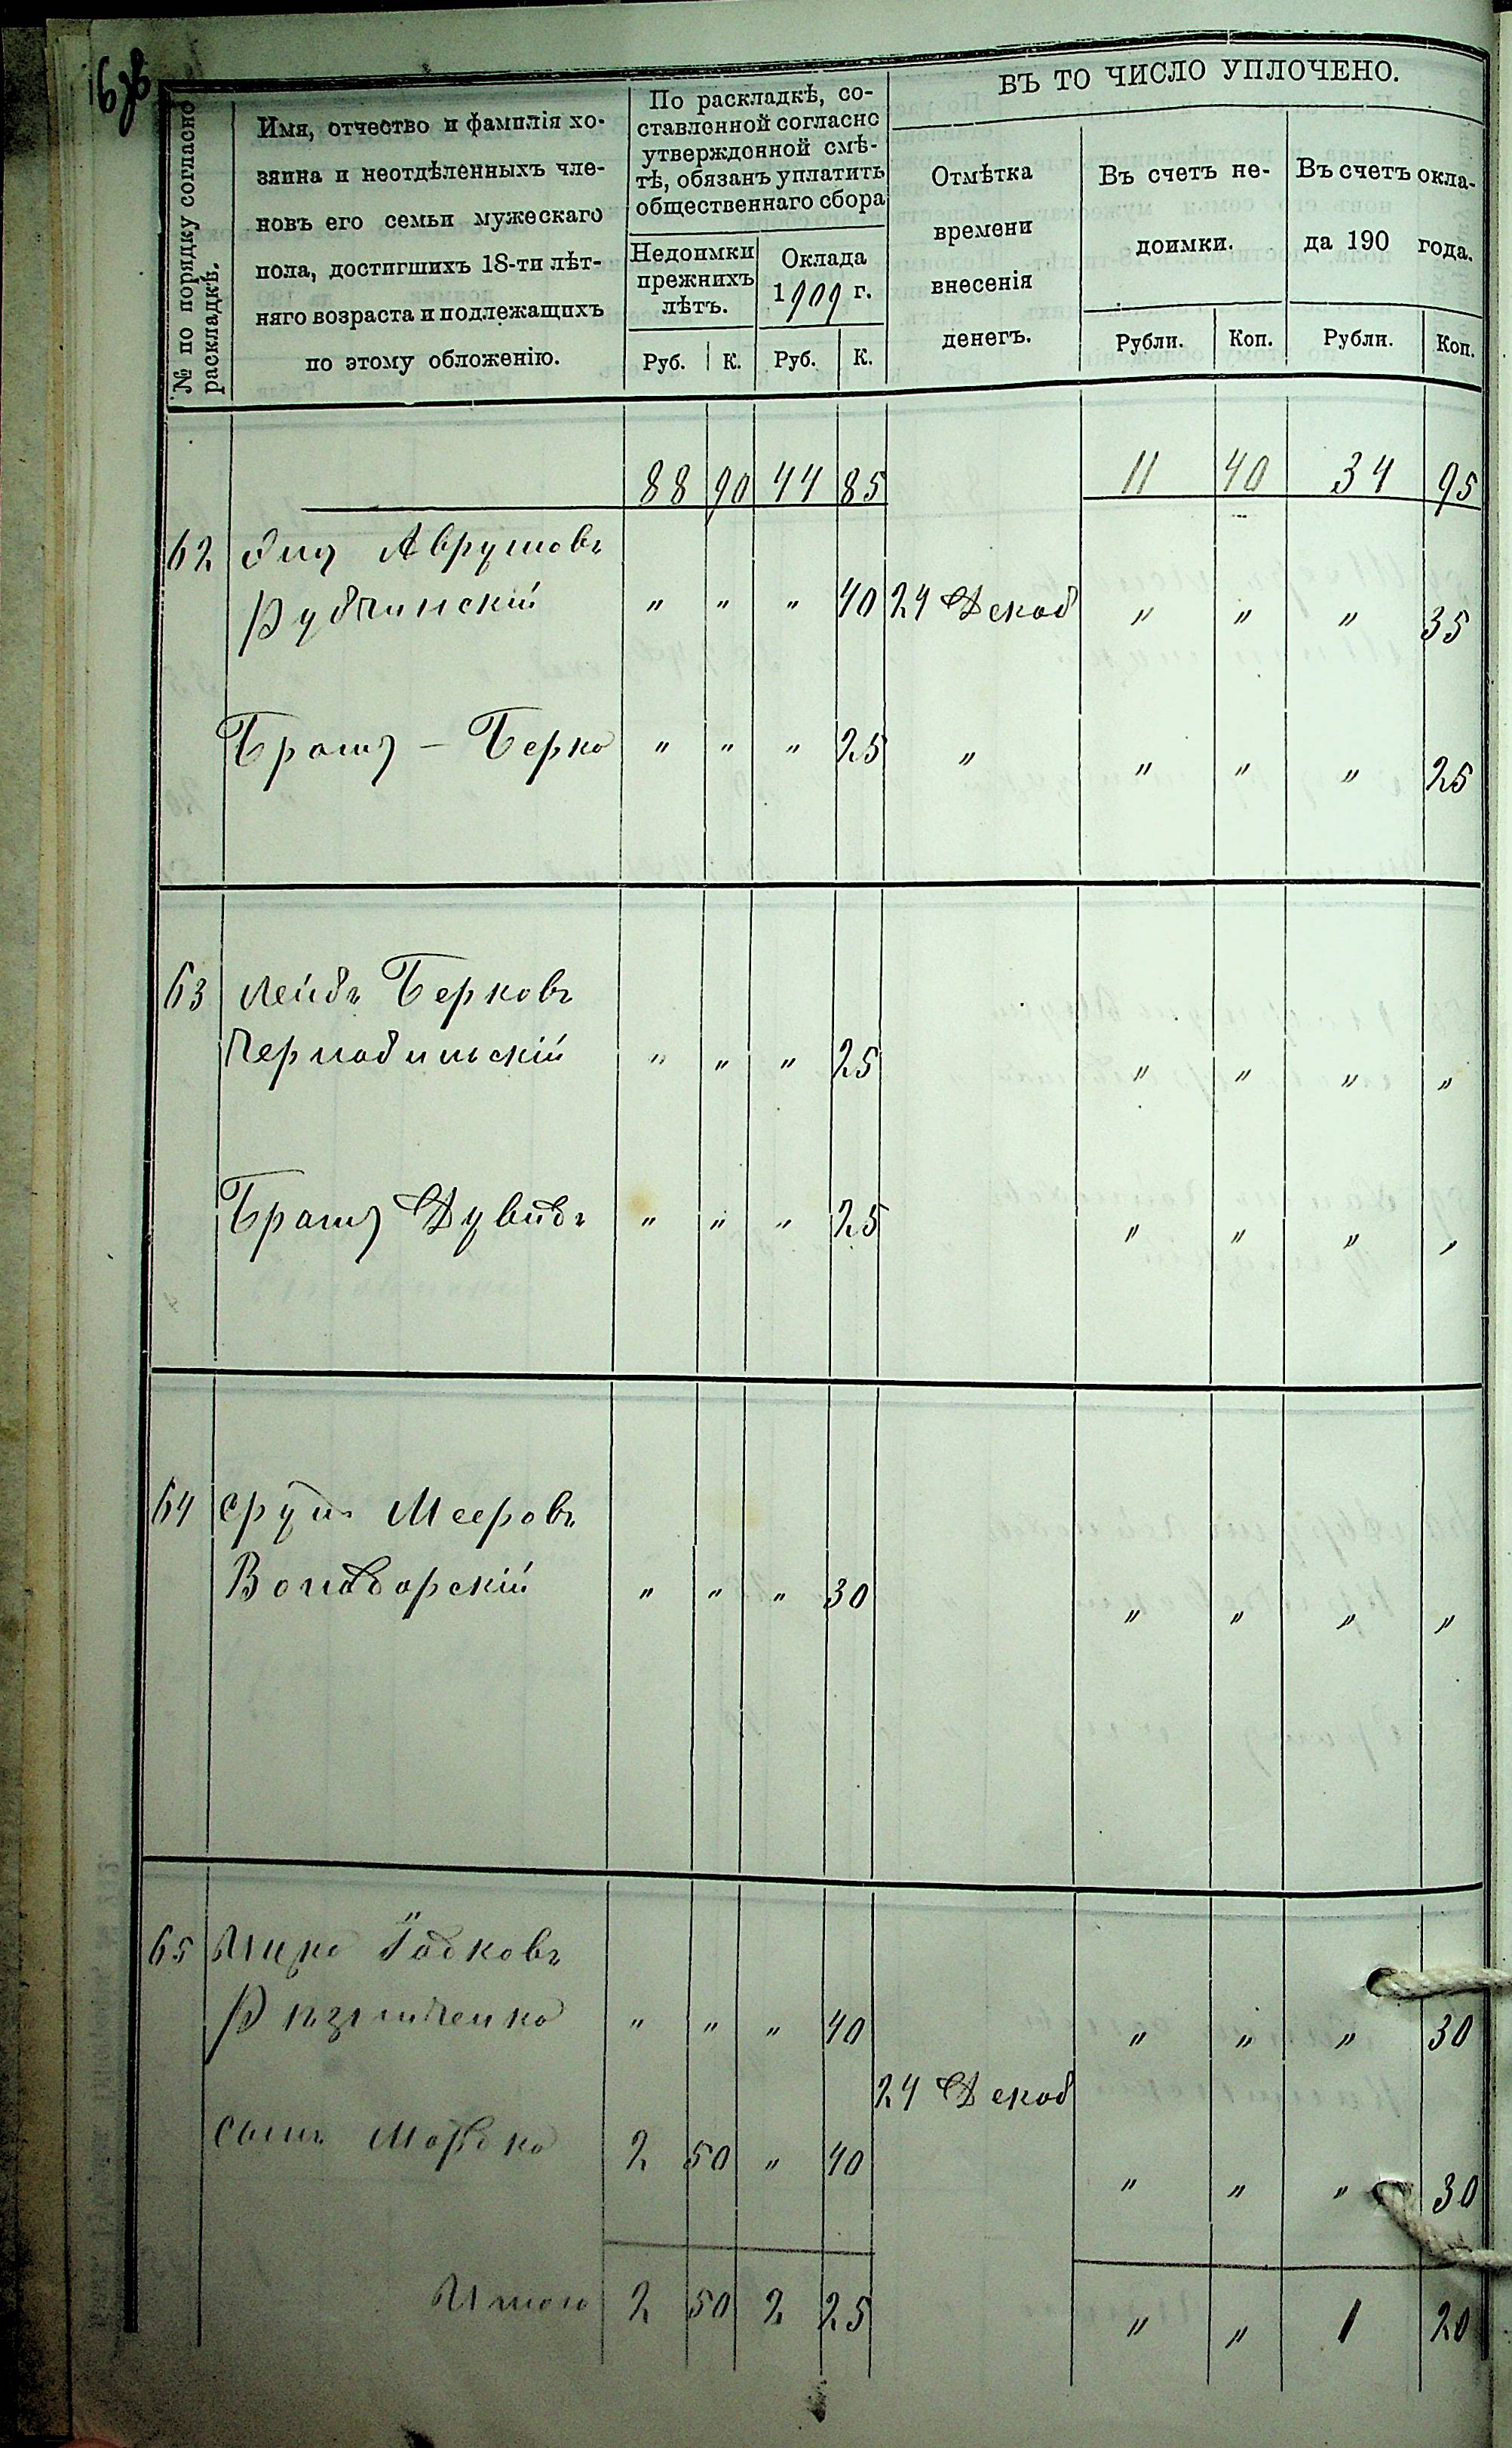 16 об
ВЪ ТО ЧИСЛО УПЛОЧЕНО.
№ по порядку согласно
раскладкѣ.
Имя, отчество и фамилія хо-
зяина и неотдѣленныхъ чле-
новъ его семьи мужескаго
пола, достигшихъ 18-ти лѣт-
няго возраста и подлежащихъ
по этому обложенію.
По раскладкѣ, со-
ставленной согласно
утвержденной смѣ-
тѣ, обязанъ уплатить
общественнаго сбора
Недоимки
прежнихъ
лѣтъ.
Оклада
1909 г.
Отмѣтка
времени
внесенія
денегъ.
Въ счетъ не-
доимки.
Въ счетъ окла-
да 190 года.
Руб. К. Руб. К. Рубли. Коп. Рубли. Коп.
88 90 44 85 11 40 34 95
62 Аврумовъ
Рубчинскій " " " 40 24 Декаб " " " 35
Братъ - Берко " " " 25 " " " " 25
63 Лейбъ Берковъ
Чернобильскій " " " 25 " " " "
Братъ Дувидъ " " " 25 " " " "
64 Сруль Мееровъ
" " " 30 " " " "
65 Ицко
" " " 40 " " " 30
24 Декаб
Сынъ Мордко 2 50 " 40 " " " 30
Итого 2 50 2 25 " " 1 20